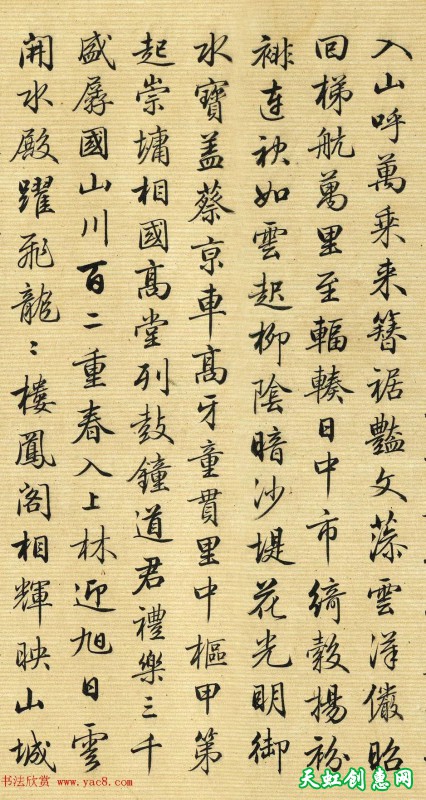 入山呼萬乗来簪裾豔文藻雲漢儼昭
回梯航萬里至輻輳日中市綺縠揚衯
裶連袂如雲起柳陰暗沙堤花光明御
水寶盖蔡京車高牙童貫里中樞甲第
起崇墉相國髙堂列鼓鐘道君禮樂三千
盛孱國山川百二重春入上林迎旭日雲
開水殿躍飛龍〻樓鳳阁相輝映山城
书法欣赏 www.yac8.com
天虹创惠网